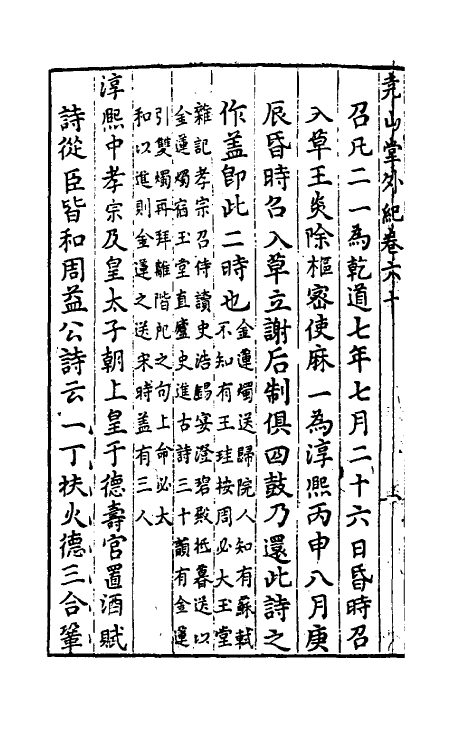 堯山堂外紀卷六十
召凡二一為乾道七年七月二十六日昏時召
入草王炎除樞密使麻一為淳熙丙申八月庚
辰昏時召入草立謝后制俱四鼓乃還此詩之
作盖卽此二時也
金蓮燭送歸院人知有蘇軾
不知有王珪按周必大玉堂
雜記孝宗召侍讀史浩錫宴澄碧殿抵暮送以
金蓮燭宿玉堂直廬史進古詩三十韻有金蓮
引雙燭再拜離階戺之句上命必太
和以進則金蓮之送宋時盖有三人
淳熙中孝宗及皇太子朝上皇于德壽宮置酒賦
詩從臣皆和周益公詩云一丁扶火德三合鞏